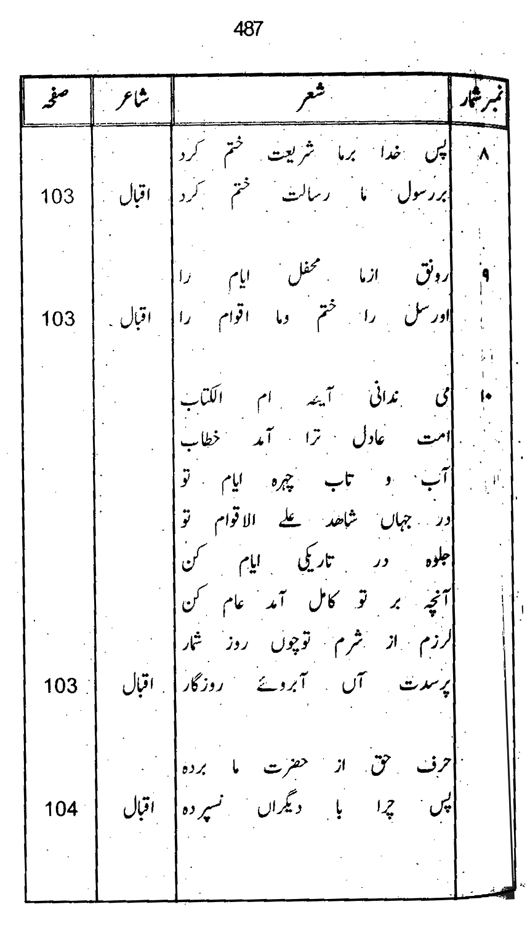 487
نمبر شمار شعر شاعر صفحہ
۸ پس خدا برما شریعت ختم کرد
بررسول ما رسالت ختم کرد اقبال 103
۹ رونق ازما محفل ایام را
اورسل را ختم وما اقوام را اقبال 103
۱۰ می ندانی آیئہ ام الکتاب
امت عادل ترا آمد خطاب
آب و تاب چہرہ ایام تو
در جہاں شاھد علے الاقوام تو
جلوہ در تاریکی ایام کن
آنچہ بر تو کامل آمد عام کن
لرزم از شرم توچوں روز شمار
پرسدت آں آبروئے روزگار اقبال 103
حرف حق از حضرت ما بردہ
پس چرا با دیگراں نسپردہ اقبال 104